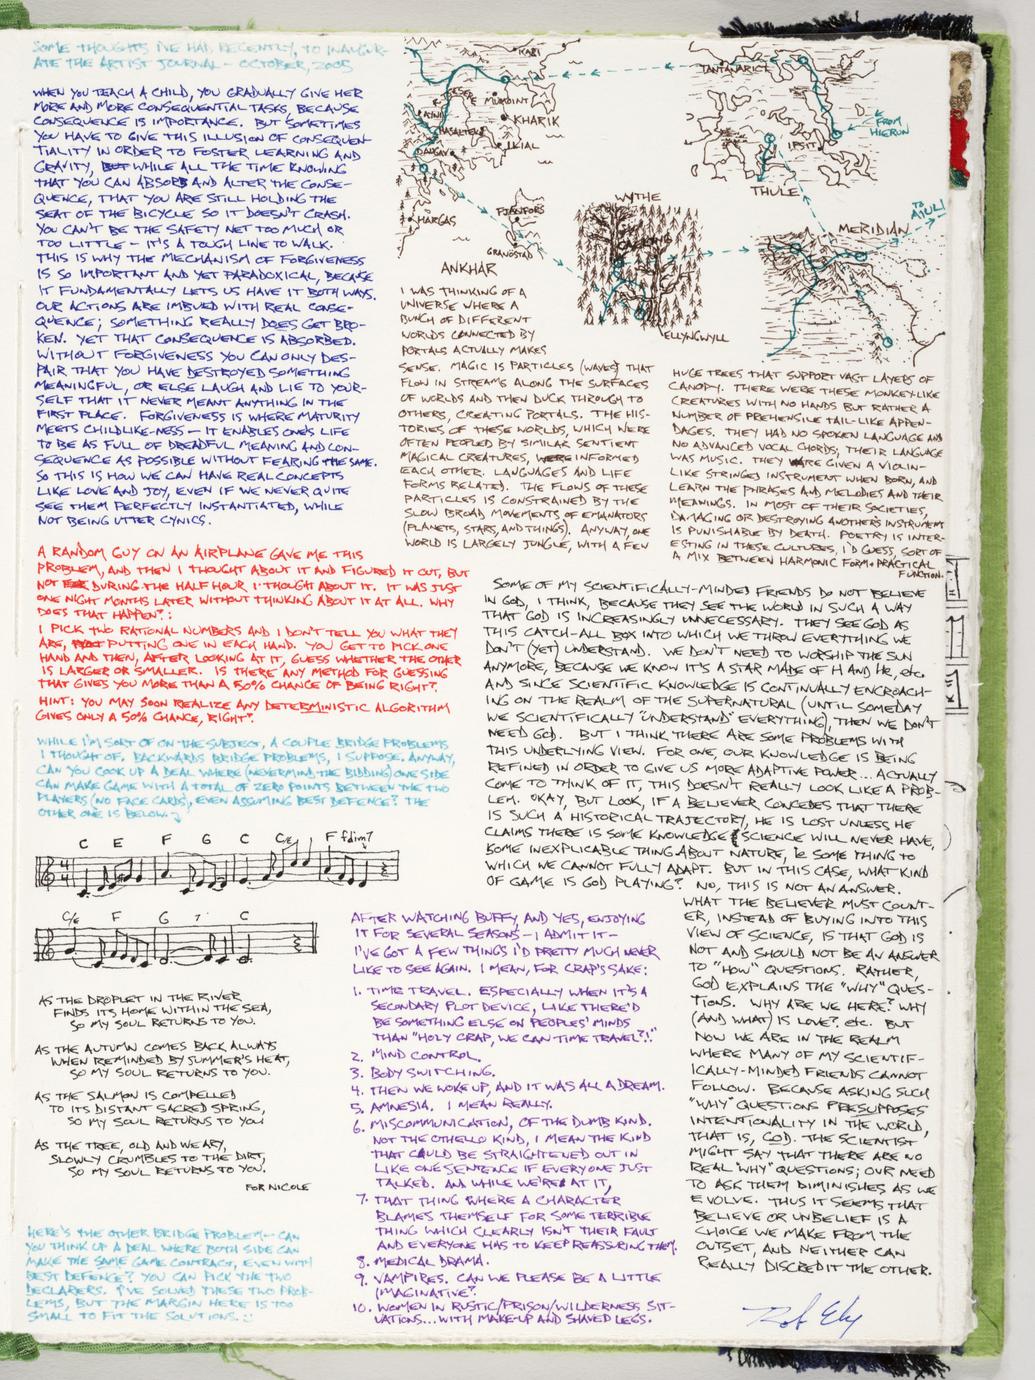 SOME THOUGHTS I'VE HAD, RECENTLY, TO INAUGUR-
ATE THE ARTIST JOURNAL - OCTOBER, 2005
WHEN YOU TEACH A CHILD, YOU GRADUALLY GIVE HER
MORE AND MORE CONSEQUENTIAL TASKS, BECAUSE
CONSEQUENCE IS IMPORTANCE. BUT SOMETIMES
YOU HAVE TO GIVE THIS ILLUSION OF CONSEQUEN-
TIALITY IN ORDER TO FOSTER LEARNING AND
GRAVITY, WHILE ALL THE TIME KNOWING
THAT YOU CAN ABSORB AND ALTER THE CONSE-
QUENCE, THAT YOU ARE STILL HOLDING THE
SEAT OF THE BICYCLE SO IT DOESN'T CRASH.
YOU CAN'T BE THE SAFETY NET TOO MUCH OR
TOO LITTLE - IT'S A TOUGH LINE TO WALK.
THIS IS WHY THE MECHANISM OF FORGIVENESS
IS SO IMPORTANT AND YET PARADOXICAL, BECAUSE
IT FUNDAMENTALLY LETS US HAVE IT BOTH WAYS.
OUR ACTIONS ARE IMBUED WITH REAL CONSE-
QUENCE; SOMETHING REALLY DOES GET BRO-
KEN. YET THAT CONSEQUENCE IS ABSORBED.
WITHOUT FORGIVENESS YOU CAN ONLY DES-
PAIR THAT YOU HAVE DESTROYED SOMETHING
MEANINGFUL, OR ELSE LAUGH AND LIE TO YOUR-
SELF THAT IT NEVER MEANT ANYTHING IN THE
FIRST PLACE. FORGIVENESS IS WHERE MATURITY
MEETS CHILDLIKE-NESS - IT ENABLES ONE'S LIFE
TO BE AS FULL OF DREADFUL MEANING AND CON-
SEQUENCE AS POSSIBLE WITHOUT FEARING THE SAME.
SO THIS IS HOW WE CAN HAVE REAL CONCEPTS
LIKE LOVE AND JOY, EVEN IF WE NEVER QUITE
SEE THEM PERFECTLY INSTANTIATED, WHILE
NOT BEING UTTER CYNICS.
KARI
MURDINT
KHARIK
IKIAL
HARGAS
FJANFORS
GRANDSTAD
ANKHAR
WYTHE
ELLYNGWYLL
TANTANARICT
IPSIT
THULE
FROM
HIERUN
MERIDIAN
TO
AIULI
I WAS THINKING OF A
UNIVERSE WHERE A
BUNCH OF DIFFERENT
WORLDS CONNECTED BY
PORTALS ACTUALLY MAKES
SENSE. MAGIC IS PARTICLES (WAVES) THAT
FLOW IN STREAMS ALONG THE SURFACES
OF WORLDS AND THEN DUCK THROUGH TO
OTHERS, CREATING PORTALS. THE HIS-
TORIES OF THESE WORLDS, WHICH WERE
OFTEN PEOPLED BY SIMILAR SENTIENT
MAGICAL CREATURES, INFORMED
EACH OTHER. LANGUAGES AND LIFE
FORMS RELATED. THE FLOWS OF THESE
PARTICLES IS CONSTRAINED BY THE
SLOW BROAD MOVEMENTS OF EMANATORS
(PLANETS, STARS, AND THINGS). ANYWAY, ONE
WORLD IS LARGELY JUNGLE, WITH A FEW
HUGE TREES THAT SUPPORT VAST LAYERS OF
CANOPY. THERE WERE THESE MONKEY-LIKE
CREATURES WITH NO HANDS BUT RATHER A
NUMBER OF PREHENSILE TAIL-LIKE APPEN-
DAGES. THEY HAD NO SPOKEN LANGUAGE AND
NO ADVANCED VOCAL CHORDS; THEIR LANGUAGE
WAS MUSIC. THEY ARE GIVEN A VIOLIN-
LIKE STRINGED INSTRUMENT WHEN BORN, AND
LEARN THE PHRASES AND MELODIES AND THEIR
MEANINGS. IN MOST OF THEIR SOCIETIES,
DAMAGING OR DESTROYING ANOTHER'S INSTRUMENT
IS PUNISHABLE BY DEATH. POETRY IS INTER-
ESTING IN THESE CULTURES, I'D GUESS, SORT OF
A MIX BETWEEN HARMONIC FORM + PRACTICAL
FUNCTION.
A RANDOM GUY ON AN AIRPLANE GAVE ME THIS
PROBLEM, AND THEN I THOUGHT ABOUT IT AND FIGURED IT OUT, BUT
NOT DURING THE HALF HOUR I THOUGHT ABOUT IT. IT WAS JUST
ONE NIGHT MONTHS LATER WITHOUT THINKING ABOUT IT AT ALL. WHY
DOES THAT HAPPEN?:
I PICK TWO RATIONAL NUMBERS AND I DON'T TELL YOU WHAT THEY
ARE, PUTTING ONE IN EACH HAND. YOU GET TO PICK ONE
HAND AND THEN, AFTER LOOKING AT IT, GUESS WHETHER THE OTHER
IS LARGER OR SMALLER. IS THERE ANY METHOD FOR GUESSING
THAT GIVES YOU MORE THAN A 50% CHANCE OF BEING RIGHT?
HINT: YOU MAY SOON REALIZE ANY DETERMINISTIC ALGORITHM
GIVES ONLY A 50% CHANCE, RIGHT?
WHILE I'M SORT OF ON THE SUBJECT, A COUPLE BRIDGE PROBLEMS
I THOUGHT OF. BACKWARDS BRIDGE PROBLEMS, I SUPPOSE. ANYWAY,
CAN YOU COOK UP A DEAL WHERE (NEVERMIND THE BIDDING) ONE SIDE
CAN MAKE GAME WITH A TOTAL OF ZERO POINTS BETWEEN THE TWO
PLAYERS (NO FACE CARDS), EVEN ASSUMING BEST DEFENCE? THE
OTHER ONE IS BELOW.
C E F G C C/E F fdim7
C/E F G 7 C
AS THE DROPLET IN THE RIVER
FINDS ITS HOME WITHIN THE SEA,
SO MY SOUL RETURNS TO YOU.
AS THE AUTUMN COMES BACK ALWAYS
WHEN REMINDED BY SUMMER'S HEAT,
SO MY SOUL RETURNS TO YOU.
AS THE SALMON IS COMPELLED
TO ITS DISTANT SACRED SPRING,
SO MY SOUL RETURNS TO YOU
AS THE TREE, OLD AND WEARY,
SLOWLY CRUMBLES TO THE DIRT,
SO MY SOUL RETURNS TO YOU.
FOR NICOLE
HERE'S THE OTHER BRIDGE PROBLEM - CAN
YOU THINK UP A DEAL WHERE BOTH SIDE CAN
MAKE THE SAME GAME CONTRACT, EVEN WITH
BEST DEFENCE? YOU CAN PICK THE TWO
DECLARERS. I'VE SOLVED THESE TWO PROB-
LEMS, BUT THE MARGIN HERE IS TOO
SMALL TO FIT THE SOLUTIONS. :)
AFTER WATCHING BUFFY, AND YES, ENJOYING
IT FOR SEVERAL SEASONS - I ADMIT IT -
I'VE GOT A FEW THINGS I'D PRETTY MUCH NEVER
LIKE TO SEE AGAIN. I MEAN, FOR CRAP'S SAKE:
1. TIME TRAVEL. ESPECIALLY WHEN IT'S A
SECONDARY PLOT DEVICE, LIKE THERE'D
BE SOMETHING ELSE ON PEOPLES' MINDS
THAN "HOLY CRAP, WE CAN TIME TRAVEL?!"
2. MIND CONTROL.
3. BODY SWITCHING.
4. THEN WE WOKE UP, AND IT WAS ALL A DREAM.
5. AMNESIA. I MEAN REALLY.
6. MISCOMMUNICATION, OF THE DUMB KIND.
NOT THE OTHELLO KIND, I MEAN THE KIND
THAT COULD BE STRAIGHTENED OUT IN
LIKE ONE SENTENCE IF EVERYONE JUST
TALKED. AND WHILE WE'RE AT IT,
7. THAT THING WHERE A CHARACTER
BLAMES THEMSELF FOR SOME TERRIBLE
THING WHICH CLEARLY ISN'T THEIR FAULT
AND EVERYONE HAS TO KEEP REASSURING THEM.
8. MEDICAL DRAMA.
9. VAMPIRES. CAN WE PLEASE BE A LITTLE
IMAGINATIVE?
10. WOMEN IN RUSTIC/PRISON/WILDERNESS SIT-
UATIONS... WITH MAKE-UP AND SHAVED LEGS.
SOME OF MY SCIENTIFICALLY-MINDED FRIENDS DO NOT BELIEVE
IN GOD, I THINK, BECAUSE THEY SEE THE WORLD IN SUCH A WAY
THAT GOD IS INCREASINGLY UNNECESSARY. THEY SEE GOD AS
THIS CATCH-ALL BOX INTO WHICH WE THROW EVERYTHING WE
DON'T (YET) UNDERSTAND. WE DON'T NEED TO WORSHIP THE SUN
ANYMORE, BECAUSE WE KNOW IT'S A STAR MADE OF H AND He, etc.
AND SINCE SCIENTIFIC KNOWLEDGE IS CONTINUALLY ENCROACH-
ING ON THE REALM OF THE SUPERNATURAL (UNTIL SOMEDAY
WE SCIENTIFICALLY "UNDERSTAND" EVERYTHING), THEN WE DON'T
NEED GOD. BUT I THINK THERE ARE SOME PROBLEMS WITH
THIS UNDERLYING VIEW. FOR ONE, OUR KNOWLEDGE IS BEING
REFINED IN ORDER TO GIVE US MORE ADAPTIVE POWER... ACTUALLY
COME TO THINK OF IT, THIS DOESN'T REALLY LOOK LIKE A PROB-
LEM. OKAY, BUT LOOK, IF A BELIEVER CONCEDES THAT THERE
IS SUCH A HISTORICAL TRAJECTORY, HE IS LOST UNLESS HE
CLAIMS THERE IS SOME KNOWLEDGE SCIENCE WILL NEVER HAVE,
SOME INEXPLICABLE THING ABOUT NATURE, ie SOME THING TO
WHICH WE CANNOT FULLY ADAPT. BUT IN THIS CASE, WHAT KIND
OF GAME IS GOD PLAYING? NO, THIS IS NOT AN ANSWER.
WHAT THE BELIEVER MUST COUNT-
ER, INSTEAD OF BUYING INTO THIS
VIEW OF SCIENCE, IS THAT GOD IS
NOT AND SHOULD NOT BE AN ANSWER
TO "HOW" QUESTIONS. RATHER,
GOD EXPLAINS THE "WHY" QUES-
TIONS. WHY ARE WE HERE? WHY
(AND WHAT) IS LOVE? etc. BUT
NOW WE ARE IN THE REALM
WHERE MANY OF MY SCIENTIF-
ICALLY-MINDED FRIENDS CANNOT
FOLLOW. BECAUSE ASKING SUCH
"WHY" QUESTIONS PRESUPPOSES
INTENTIONALITY IN THE WORLD,
THAT IS, GOD. THE SCIENTIST
MIGHT SAY THAT THERE ARE NO
REAL "WHY" QUESTIONS; OUR NEED
TO ASK THEM DIMINISHES AS WE
EVOLVE. THUS IT SEEMS THAT
BELIEVE OR UNBELIEF IS A
CHOICE WE MAKE FROM THE
OUTSET, AND NEITHER CAN
REALLY DISCREDIT THE OTHER.
Rob Ely